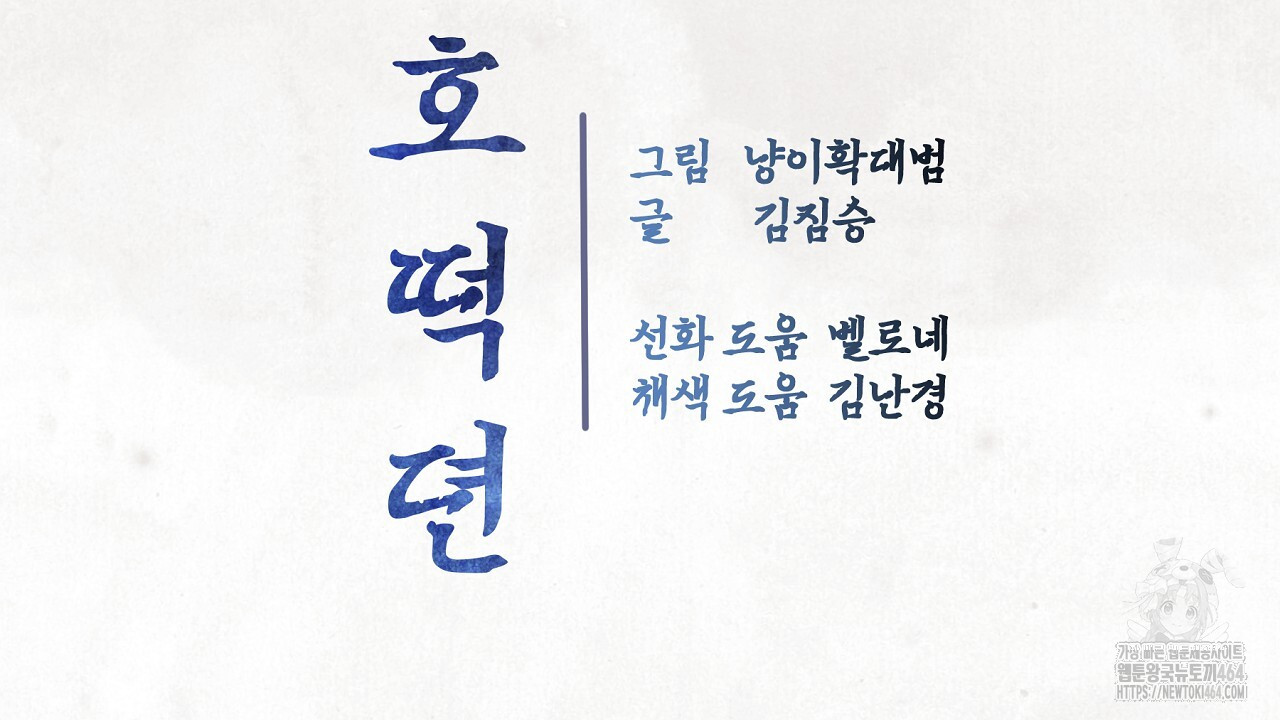 호떡뎐
그림 냥이확대범
글 김짐승
선화 도움 벨로네
채색 도움 김난경
가장 빠른 웹툰제공사이트
웹툰왕국뉴토끼464
HTTPS://NEWTOKI464.COM